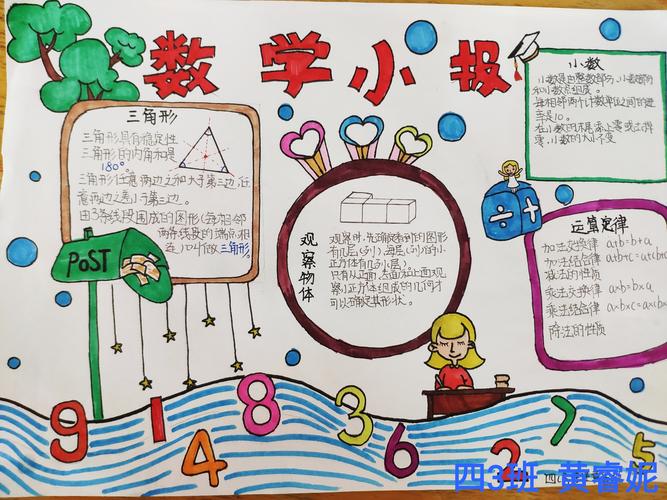 数学小报
三角形
三角形具有稳定性
三角形的内角和是
180°。
三角形任意两边之和大于第三边,任
意两边之差小于第三边。
由3条线段围成的图形(每相邻
两条线段的端点相
连)叫做三角形。
POST
观察物体
观察时,先确定看到的图形
有几层(列),每层(列)有小
正方体有几列(层)
只有从正面,左面和上面观
察小正方体组成的几何才
可以确定其形状。
小数
小数是由整数部分、小数部分
和小数点组成。
每相邻两个计数单位之间的进
率是10。
在小数的末尾添上零或去掉
零,小数的大小不变
÷ +
运算定律
加法交换律 a+b=b+a
加法结合律 a+b+c=a+(b+c
减法的性质
乘法交换律 a×b=b×a
乘法结合律 a×b×c=a×(b×c
除法的性质
9 1 4 8 3 6 2 7 5
四3班 黄睿妮